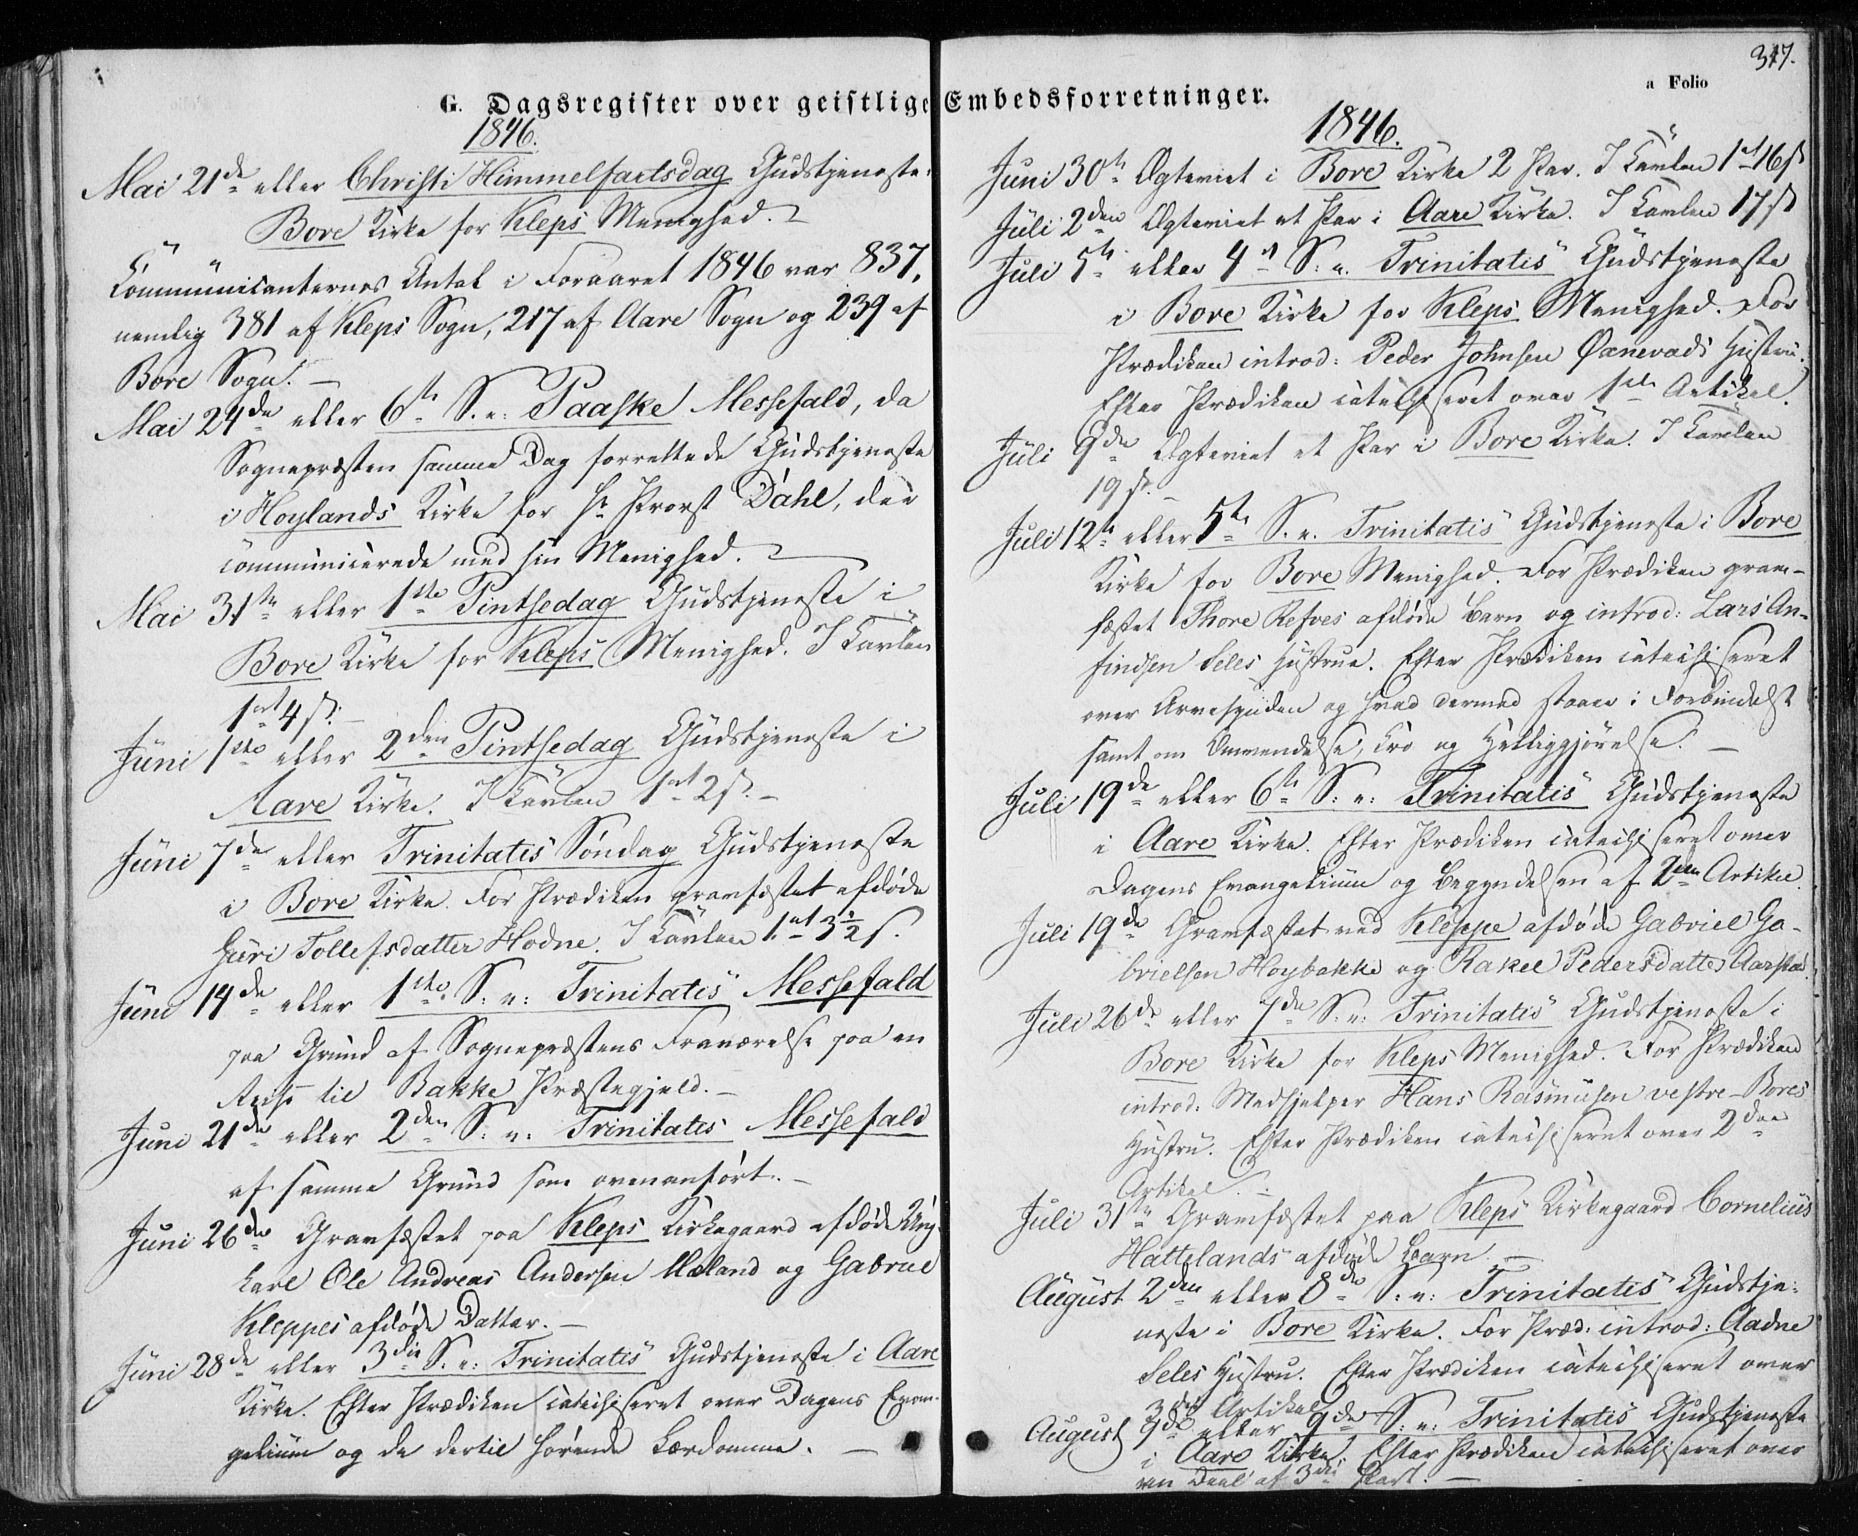 G. Dagsregister over geistlige Embedsforretninger.
a Folio
317.
1846.
Mai 21de eller Christi Himmelfartsdag Gudstjeneste i
Bore Kirke for Kleps Menighed.
Communicanternes Antal i Foraaret 1846 var 837,
nemlig 381 af Kleps Sogn, 217 af Aare Sogn og 239 af
Bore Sogn. –
Mai 24de eller 6te S. e: Paaske Messefald, da
Sognepræsten samme Dag forrettede Gudstjeneste
i Hoylands Kirke for Hr Provst Dahl, der
communicerede med sin Menighed.
Mai 31te eller 1ste Pintsedag Gudstjeneste i
Bore Kirke for Kleps Menighed. I Tavlen
1ort 4 s. –
Juni 1ste eller 2den Pintsedag Gudstjeneste i
Aare Kirke. I Tavlen 1ort 2 s. –
Juni 7de eller Trinitatis Søndag Gudstjeneste
i Bore Kirke. For Prædiken gravfæstet afdøde
Guri Tollefsdatter Hodne. I Tavlen 1ort 3½ s.
Juni 14de eller 1ste S: e: Trinitatis Messefald
paa Grund af Sognepræstens Fraværelse paa en
Reise til Bakke Præstegjeld. –
Juni 21de eller 2den S: e: Trinitatis Messefald
af samme Grund som ovenanført. –
Juni 26de Gravfæstet paa Kleps Kirkegaard afdøde Ung-
karl Ole Andreas Andersen Mæland og Gabriel
Kleppes afdøde Datter. –
Juni 28de eller 3die S. e: Trinitatis Gudstjeneste i Aare
Kirke. Efter Prædiken catechiseret over Dagens Evan-
gelium og de dertil hørende Lærdomme. –
1846.
Juni 30te Ægteviet i Bore Kirke 2 Par. I Tavlen 1ort 16 s
Juli 2den Ægteviet et Par i Aare Kirke. I Tavlen 17 s
Juli 5te eller 4de S: e. Trinitatis Gudstjeneste
i Bore Kirke for Kleps Menighed. For
Prædiken introd: Peder Johnsen Øxnevads Hustru.
Efter Prædiken catechiseret over 1ste Artikel.
Juli 9de Ægteviet et Par i Bore Kirke. I Tavlen
19 s. –
Juli 12te eller 5te S. e. Trinitatis Gudstjeneste i Bore
Kirke for Bore Menighed. For Prædiken grav-
fæstet Thore Refves afdøde Barn og introd: Lars An-
findsen Seles Hustrue. Efter Prædiken catechiseret
over Arvesynden og hvad dermed staaer i Forbindelse
samt om Omvendelse, Tro og Helliggjørelse. –
Juli 19de eller 6te S: e: Trinitatis Gudstjeneste
i Aare Kirke. Efter Prædiken catechiseret over
Dagens Evangelium og Begyndelsen af 2den Artikel.
Juli 19de Gravfæstet ved Kleppe afdøde Gabriel Ga-
brielsen Hoybakke og Rakel Pedersdatter Aarstad.
Juli 26de eller 7de S: e: Trinitatis Gudstjeneste i
Bore Kirke for Kleps Menighed. For Prædiken
introd. Medhjelper Hans Rasmusen vestre-Bores
Hustru. Efter Prædiken catechiseret over 2den
Artikel. –
Juli 31te Gravfæstet paa Kleps Kirkegaard Cornelius
Hattelands afdøde Barn. –
August 2den eller 8de S. e: Trinitatis Gudstje-
neste i Bore Kirke. For Præd: introd: Aadne
Seles Hustru. Efter Prædiken catechiseret over
3die Artikel
August 9de eller 9de S: e: Trinitatis Gudstjeneste
i Aare Kirke. Efter Prædiken catechiseret over
en Deel af 3die Part. –